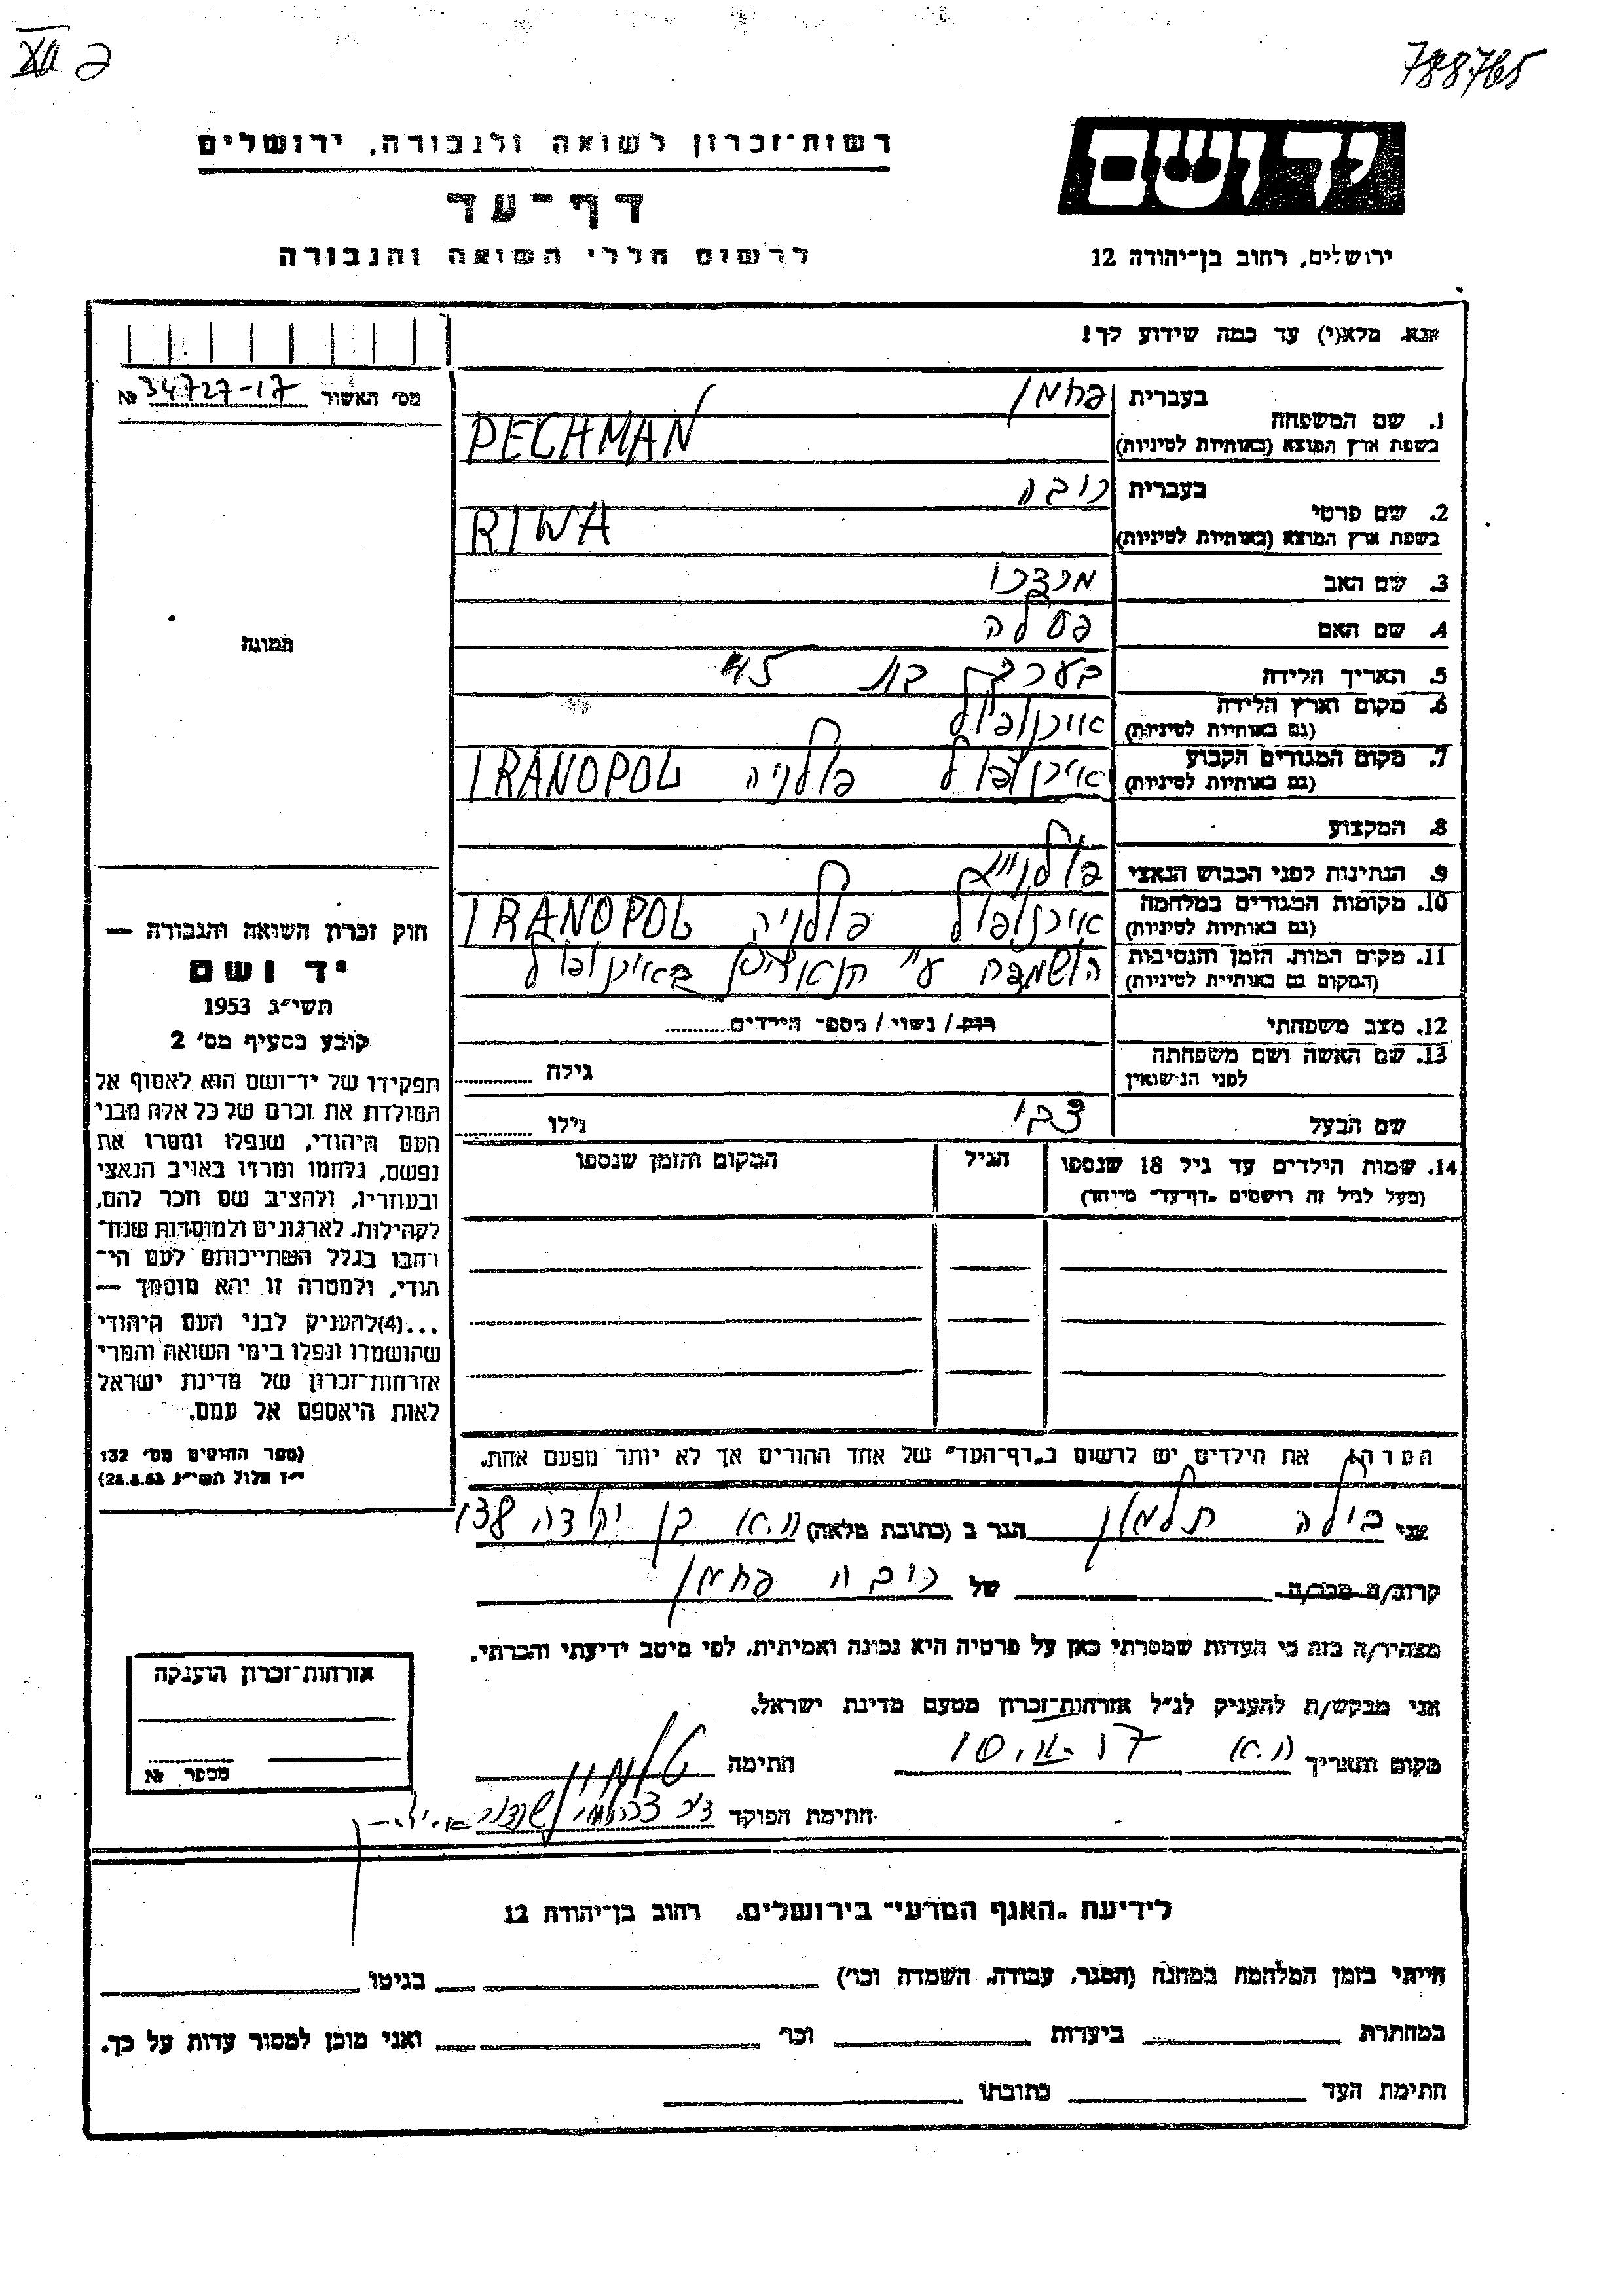 788765
פ XII
יד ושם
ירושלים, רחוב בן־יהודה 12
רשות־זכרון לשואה ולגבורה, ירושלים
דף־עד
לרשום חללי השואה והגבורה
אנא, מלא(י) עד כמה שידוע לך!
מס׳ האשור 34727-17 №
תמונה
1. שם המשפחה בעברית פחמן
בשפת ארץ המוצא (באותיות לטיניות) PECHMAN
2. שם פרטי בעברית ריבה
בשפת ארץ המוצא (באותיות לטיניות) RIWA
3. שם האב
4. שם האם פסלה
5. תאריך הלידה בערך בת 45
6. מקום וארץ הלידה אירנופול
(גם באותיות לטיניות)
7. מקום המגורים הקבוע אירנופול פולניה IRANOPOL
(גם באותיות לטיניות)
8. המקצוע
9. הנתינות לפני הכבוש הנאצי
10. מקומות המגורים במלחמה אירנופול פולניה IRANOPOL
(גם באותיות לטיניות)
11. מקום המות, הזמן והנסיבות הושמדה ע״י הנאצים באירנופול
(המקום גם באותיות לטיניות)
12. מצב משפחתי רוק/ נשוי/ מספר הילדים
13. שם האשה ושם משפחתה
לפני הנישואין גילה
שם הבעל צבי גילו
14. שמות הילדים עד גיל 18 שנספו הגיל המקום והזמן שנספו
(מעל לגיל זה רושמים „דף־עד״ מיוחד)
חוק זכרון השואה והגבורה —
יד ושם
תשי״ג 1953
קובע בסעיף מס׳ 2
תפקידו של יד־ושם הוא לאסוף אל
המולדת את זכרם של כל אלה מבני
העם היהודי, שנפלו ומסרו את
נפשם, נלחמו ומרדו באויב הנאצי
ובעוזריו, ולהציב שם וזכר להם,
לקהילות, לארגונים ולמוסדות שנח־
רבו בגלל השתייכותם לעם הי־
הודי, ולמטרה זו יהא מוסמך —
...(4)להעניק לבני העם היהודי
שהושמדו ונפלו בימי השואה והמרי
אזרחות־זכרון של מדינת ישראל
לאות היאספם אל עמם.
(ספר החוקים מס׳ 132
י״ז אלול תשי״ג 28.8.53)
הערה, את הילדים יש לרשום ב„דף־העד״ של אחד ההורים אך לא יותר מפעם אחת.
אני בילה תלמון הגר ב (כתובת מלאה) ת.א בן יהודה 138
קרוב/ה מכר/ה של ריבה פחמן
מצהיר/ה בזה כי העדות שמסרתי כאן על פרטיה היא נכונה ואמיתית, לפי מיטב ידיעתי והכרתי.
אני מבקש/ת להעניק לנ״ל אזרחות־זכרון מטעם מדינת ישראל.
מקום ותאריך ת.א חתימה
חתימת הפוקד
אזרחות־זכרון הוענקה
מספר №
לידיעת „האגף המדעי״ בירושלים, רחוב בן־יהודה 12
הייתי בזמן המלחמה במחנה (הסגר, עבודה, השמדה וכו׳) בגיטו
במחתרת ביערות וכו׳ ואני מוכן למסור עדות על כך.
חתימת העד כתובתו